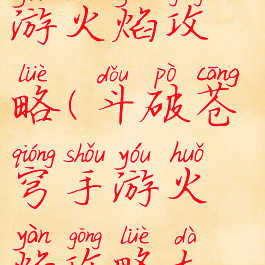 游火焰攻
lüè dǒu pò cāng
略(斗破苍
qióng shǒu yóu huǒ
穹手游火
yàn gōng lüè dà